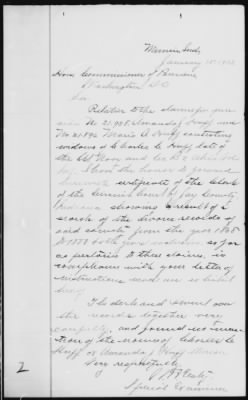 January 15
Hon. Commissioner of Pensions
Washington D.C.
Sir
Relative to the claims for pension
No 21,908, Amanda J Huff and
No 21,896 Maria A Huff contesting
widows of Charles C. Huff late of
I have the honor to forward
herewith certificate of the clerk
of the Circuit Court of Jay County
Indiana showing a result of a
search of the divorce records of
said county from the year 1865
to 1877 both years inclusive so far
as pertains to these claims, in
compliance with your letter of
instructions
The clerk and myself went over
the records together very
carefully, and found no men
tion of the names of Charles C.
Huff or Amanda J Huff
Very respectfully
Special Examiner
2